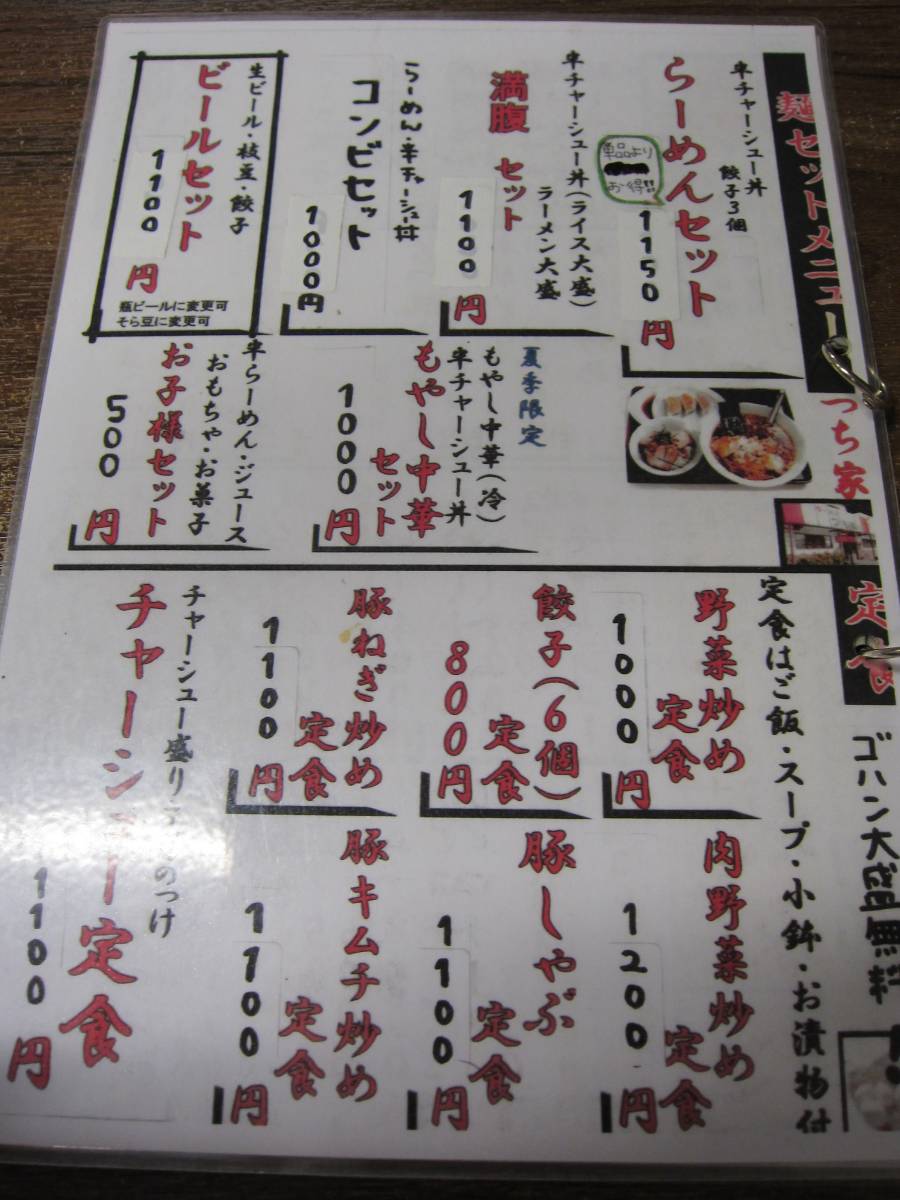 麺セットメニュー
つち家
らーめんセット
半チャーシュー丼
餃子3個
単品より
お得!!
1150円
満腹セット
半チャーシュー丼(ライス大盛)
ラーメン大盛
1100円
らーめん・半チャーシュー丼
コンビセット
1000円
生ビール・枝豆・餃子
ビールセット
1100円
瓶ビールに変更可
そら豆に変更可
夏季限定
もやし中華(冷)
半チャーシュー丼
もやし中華
セット
1000円
半らーめん・ジュース
おもちゃ・お菓子
お子様セット
500円
定食
ゴハン大盛無料
定食はご飯・スープ・小鉢・お漬物付
野菜炒め
定食
1000円
肉野菜炒め
定食
1200円
餃子(6個)
定食
800円
豚しゃぶ
定食
1100円
豚ねぎ炒め
定食
1100円
豚キムチ炒め
定食
1100円
チャーシュー盛り
のつけ
チャーシュー定食
1100円